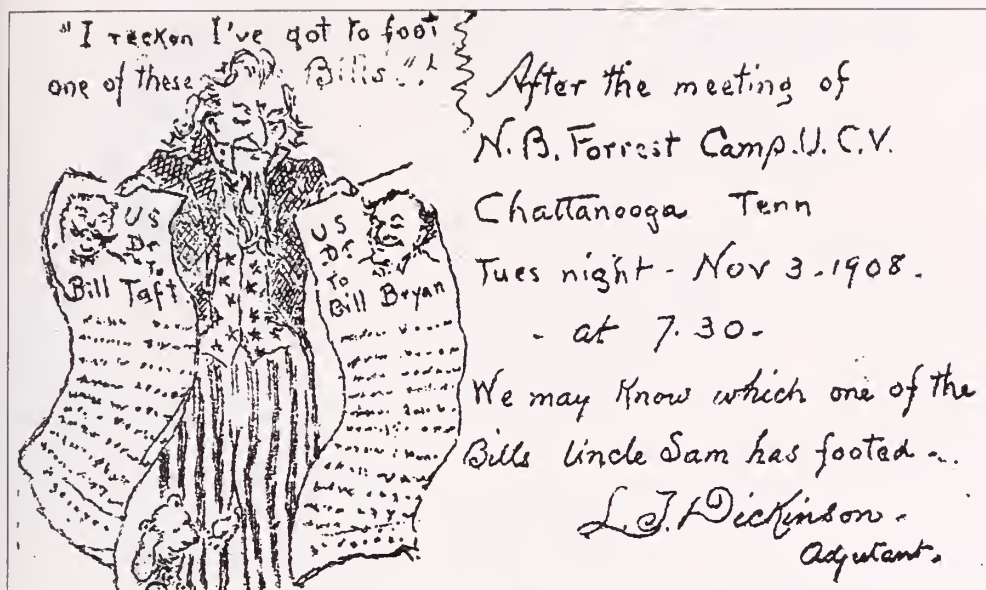 "I reckon I've got to foot
one of these Bills".!
US
Dr.
To
Bill Taft
US
Dr.
To
Bill Bryan
After the meeting of
N.B. Forrest Camp. U.C.V.
Chattanooga Tenn
Tues night - Nov 3 - 1908.
- at 7.30 -
We may Know which one of the
Bills Uncle Sam has footed...
L.J. Dickinson.
Adjutant.